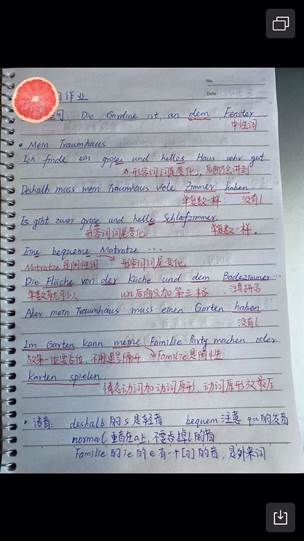 No.
Date
作业
Die Gardine ist an dem Fenster
中性词
• Mein Traumhaus
Ich finde ein großes und helles Haus sehr gut
形容词词尾变化，后面会讲到
Deshalb muss mein Traumhaus viele Zimmer haben
单复数一样 没有l
Es gibt zwei große und helle Schlafzimmer
形容词词尾变化 单复数一样.
Eine bequeme Matratze ...
Matratze是阴性词 形容词词尾变化
Die Fläche von der Küche und dem Badezimmer...
von后面加第三格
Aber mein Traumhaus muss einen Garten haben
没有l
Im Garten kann meine Familie Party machen oder
Familie是阴性
Karten spielen
情态动词加动词原形，动词原形放最后
• 语音: deshalb的s是轻音 bequem 注意qu的发音
normal 重音在a上，不要吞掉l的音
Familie的ie的e有一个[ə]的音，是外来词